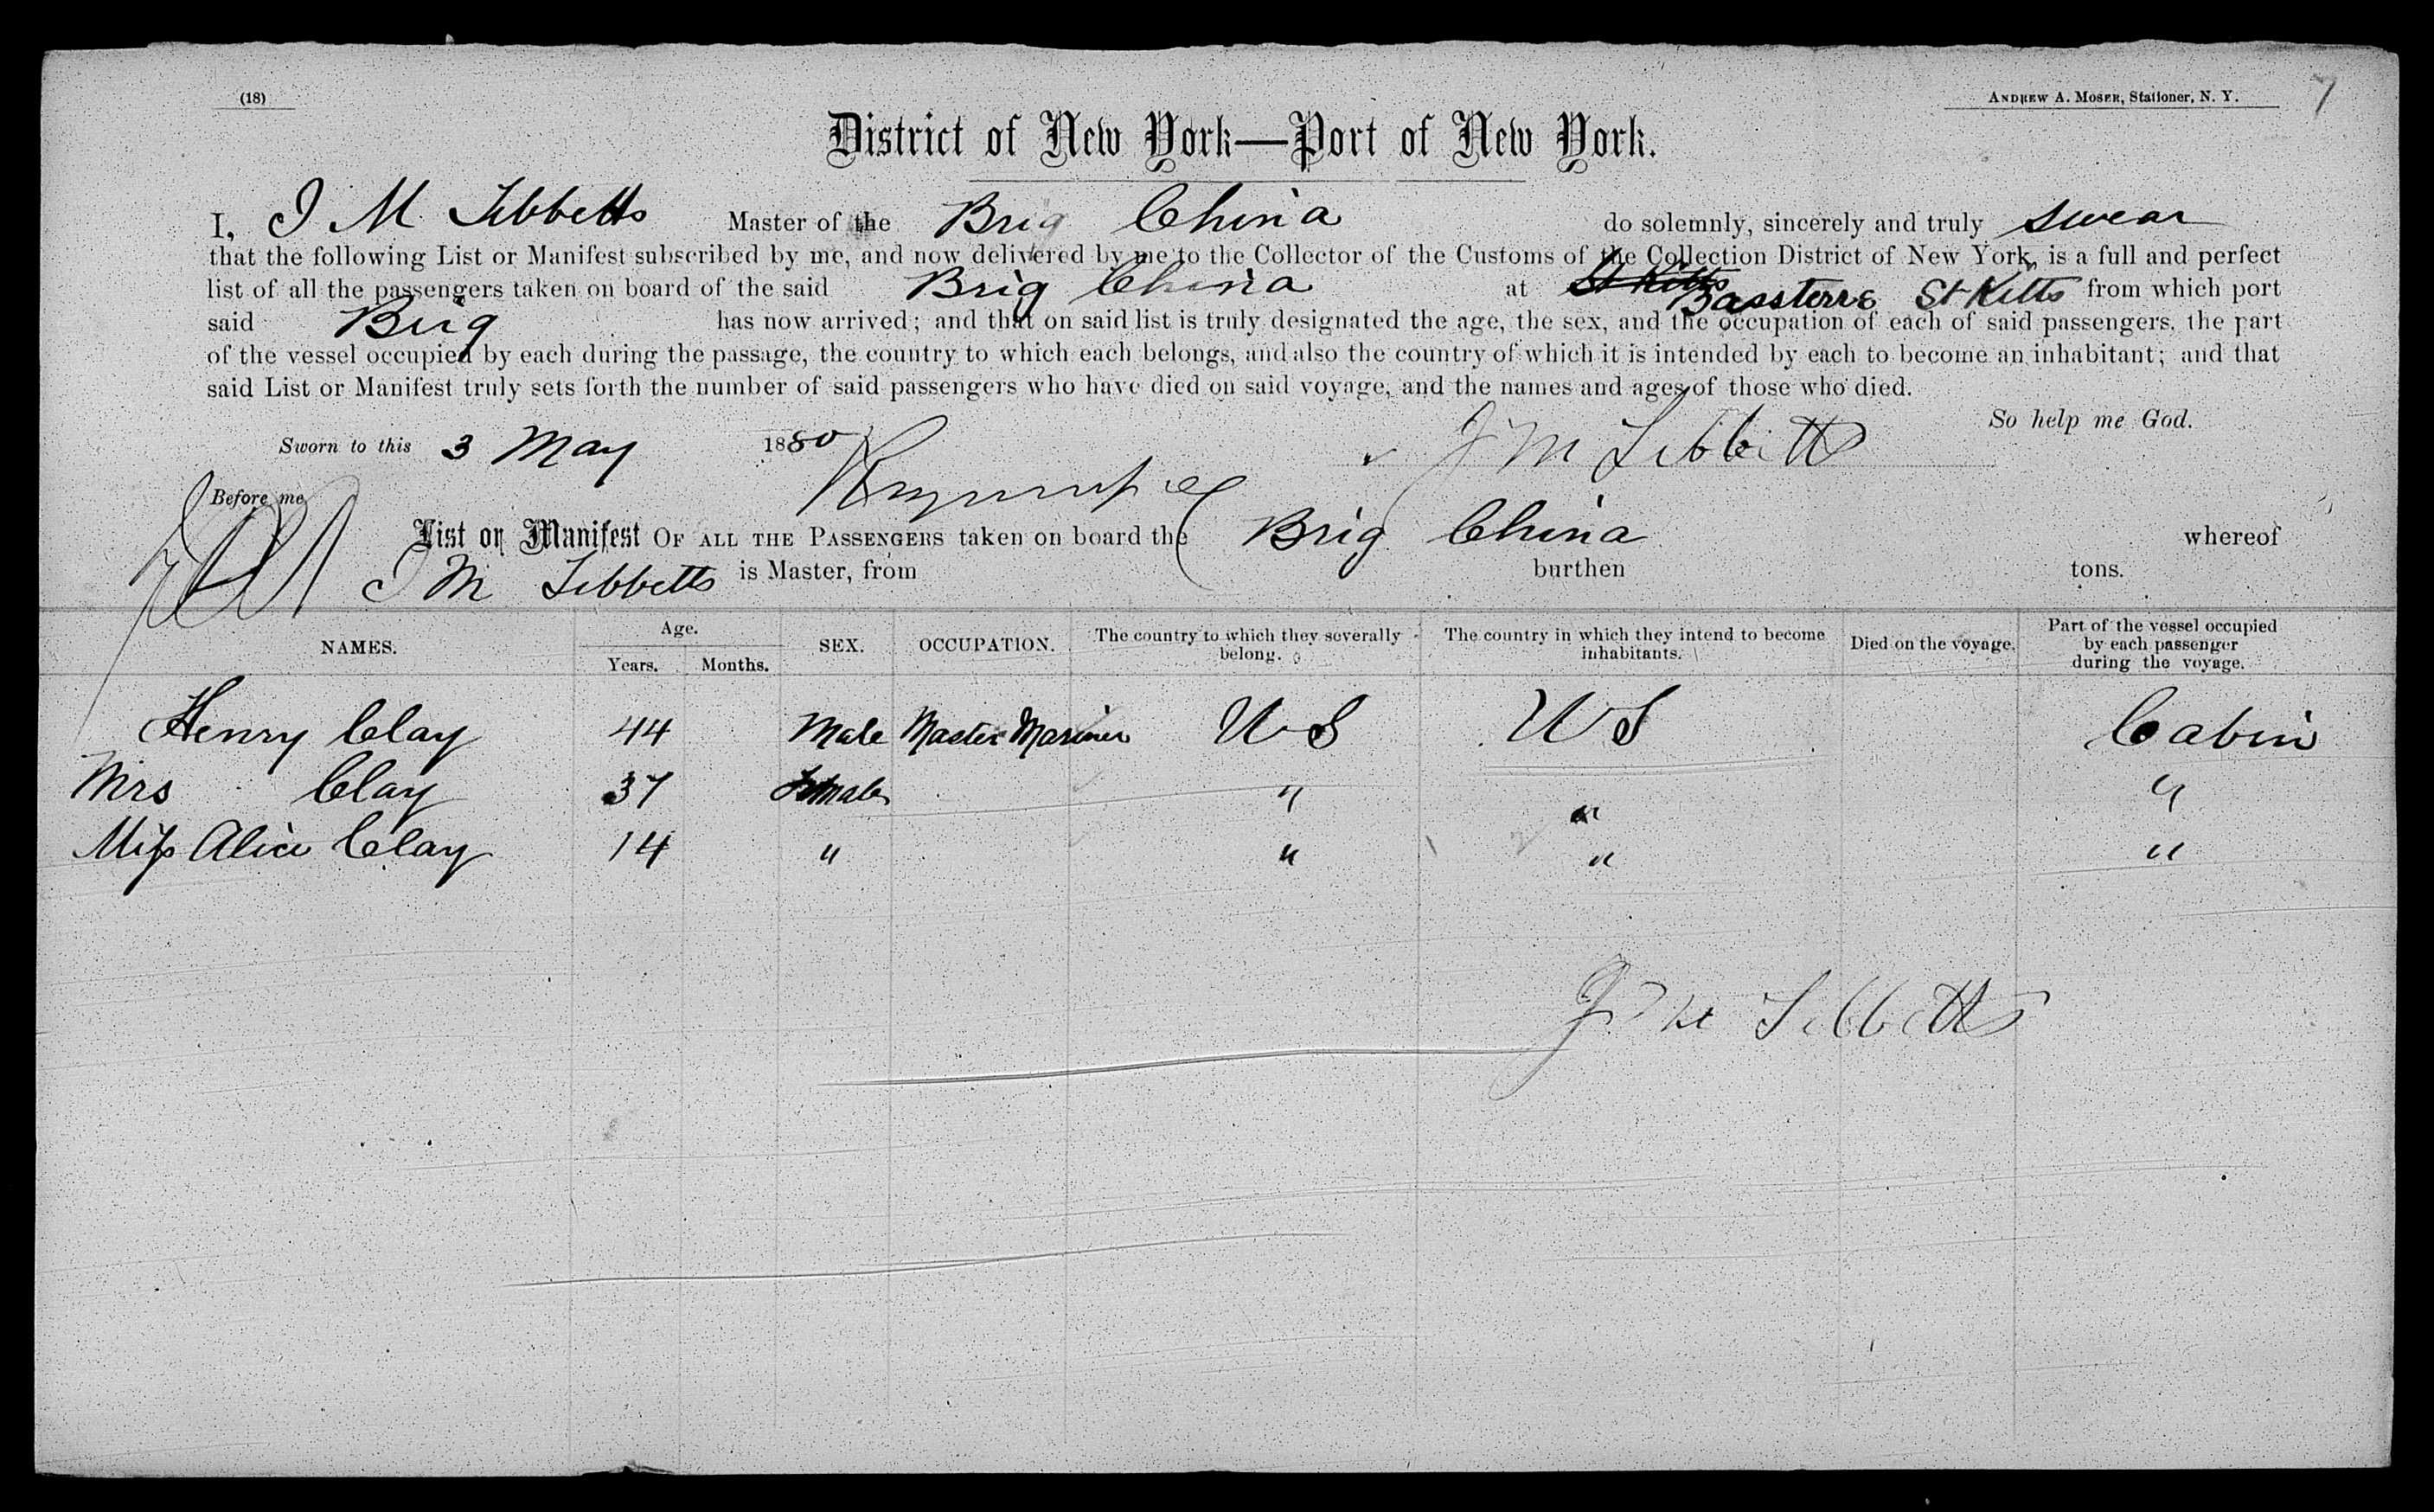 (18)
ANDREW A. MOSER, Stationer, N. Y.
7
District of New York—Port of New York.
I, J M Tibbetts Master of the Brig China do solemnly, sincerely and truly swear
that the following List or Manifest subscribed by me, and now delivered by me to the Collector of the Customs of the Collection District of New York, is a full and perfect
list of all the passengers taken on board of the said Brig China at St Kitts Bassterre St Kitts from which port
said Brig has now arrived; and that on said list is truly designated the age, the sex, and the occupation of each of said passengers, the part
of the vessel occupied by each during the passage, the country to which each belongs, and also the country of which it is intended by each to become an inhabitant; and that
said List or Manifest truly sets forth the number of said passengers who have died on said voyage, and the names and ages of those who died.
So help me God.
Sworn to this 3 May 1880 J M Tibbetts
Before me
List or Manifest OF ALL THE PASSENGERS taken on board the Brig China whereof
J M Tibbetts is Master, from burthen tons.
NAMES. Age. Years. Months. SEX. OCCUPATION. The country to which they severally belong. The country in which they intend to become inhabitants. Died on the voyage. Part of the vessel occupied by each passenger during the voyage.
Henry Clay 44 Male Master Mariner U S U S Cabin
Mrs Clay 37 Female " " "
Miss Alice Clay 14 " " " "
J M Tibbetts